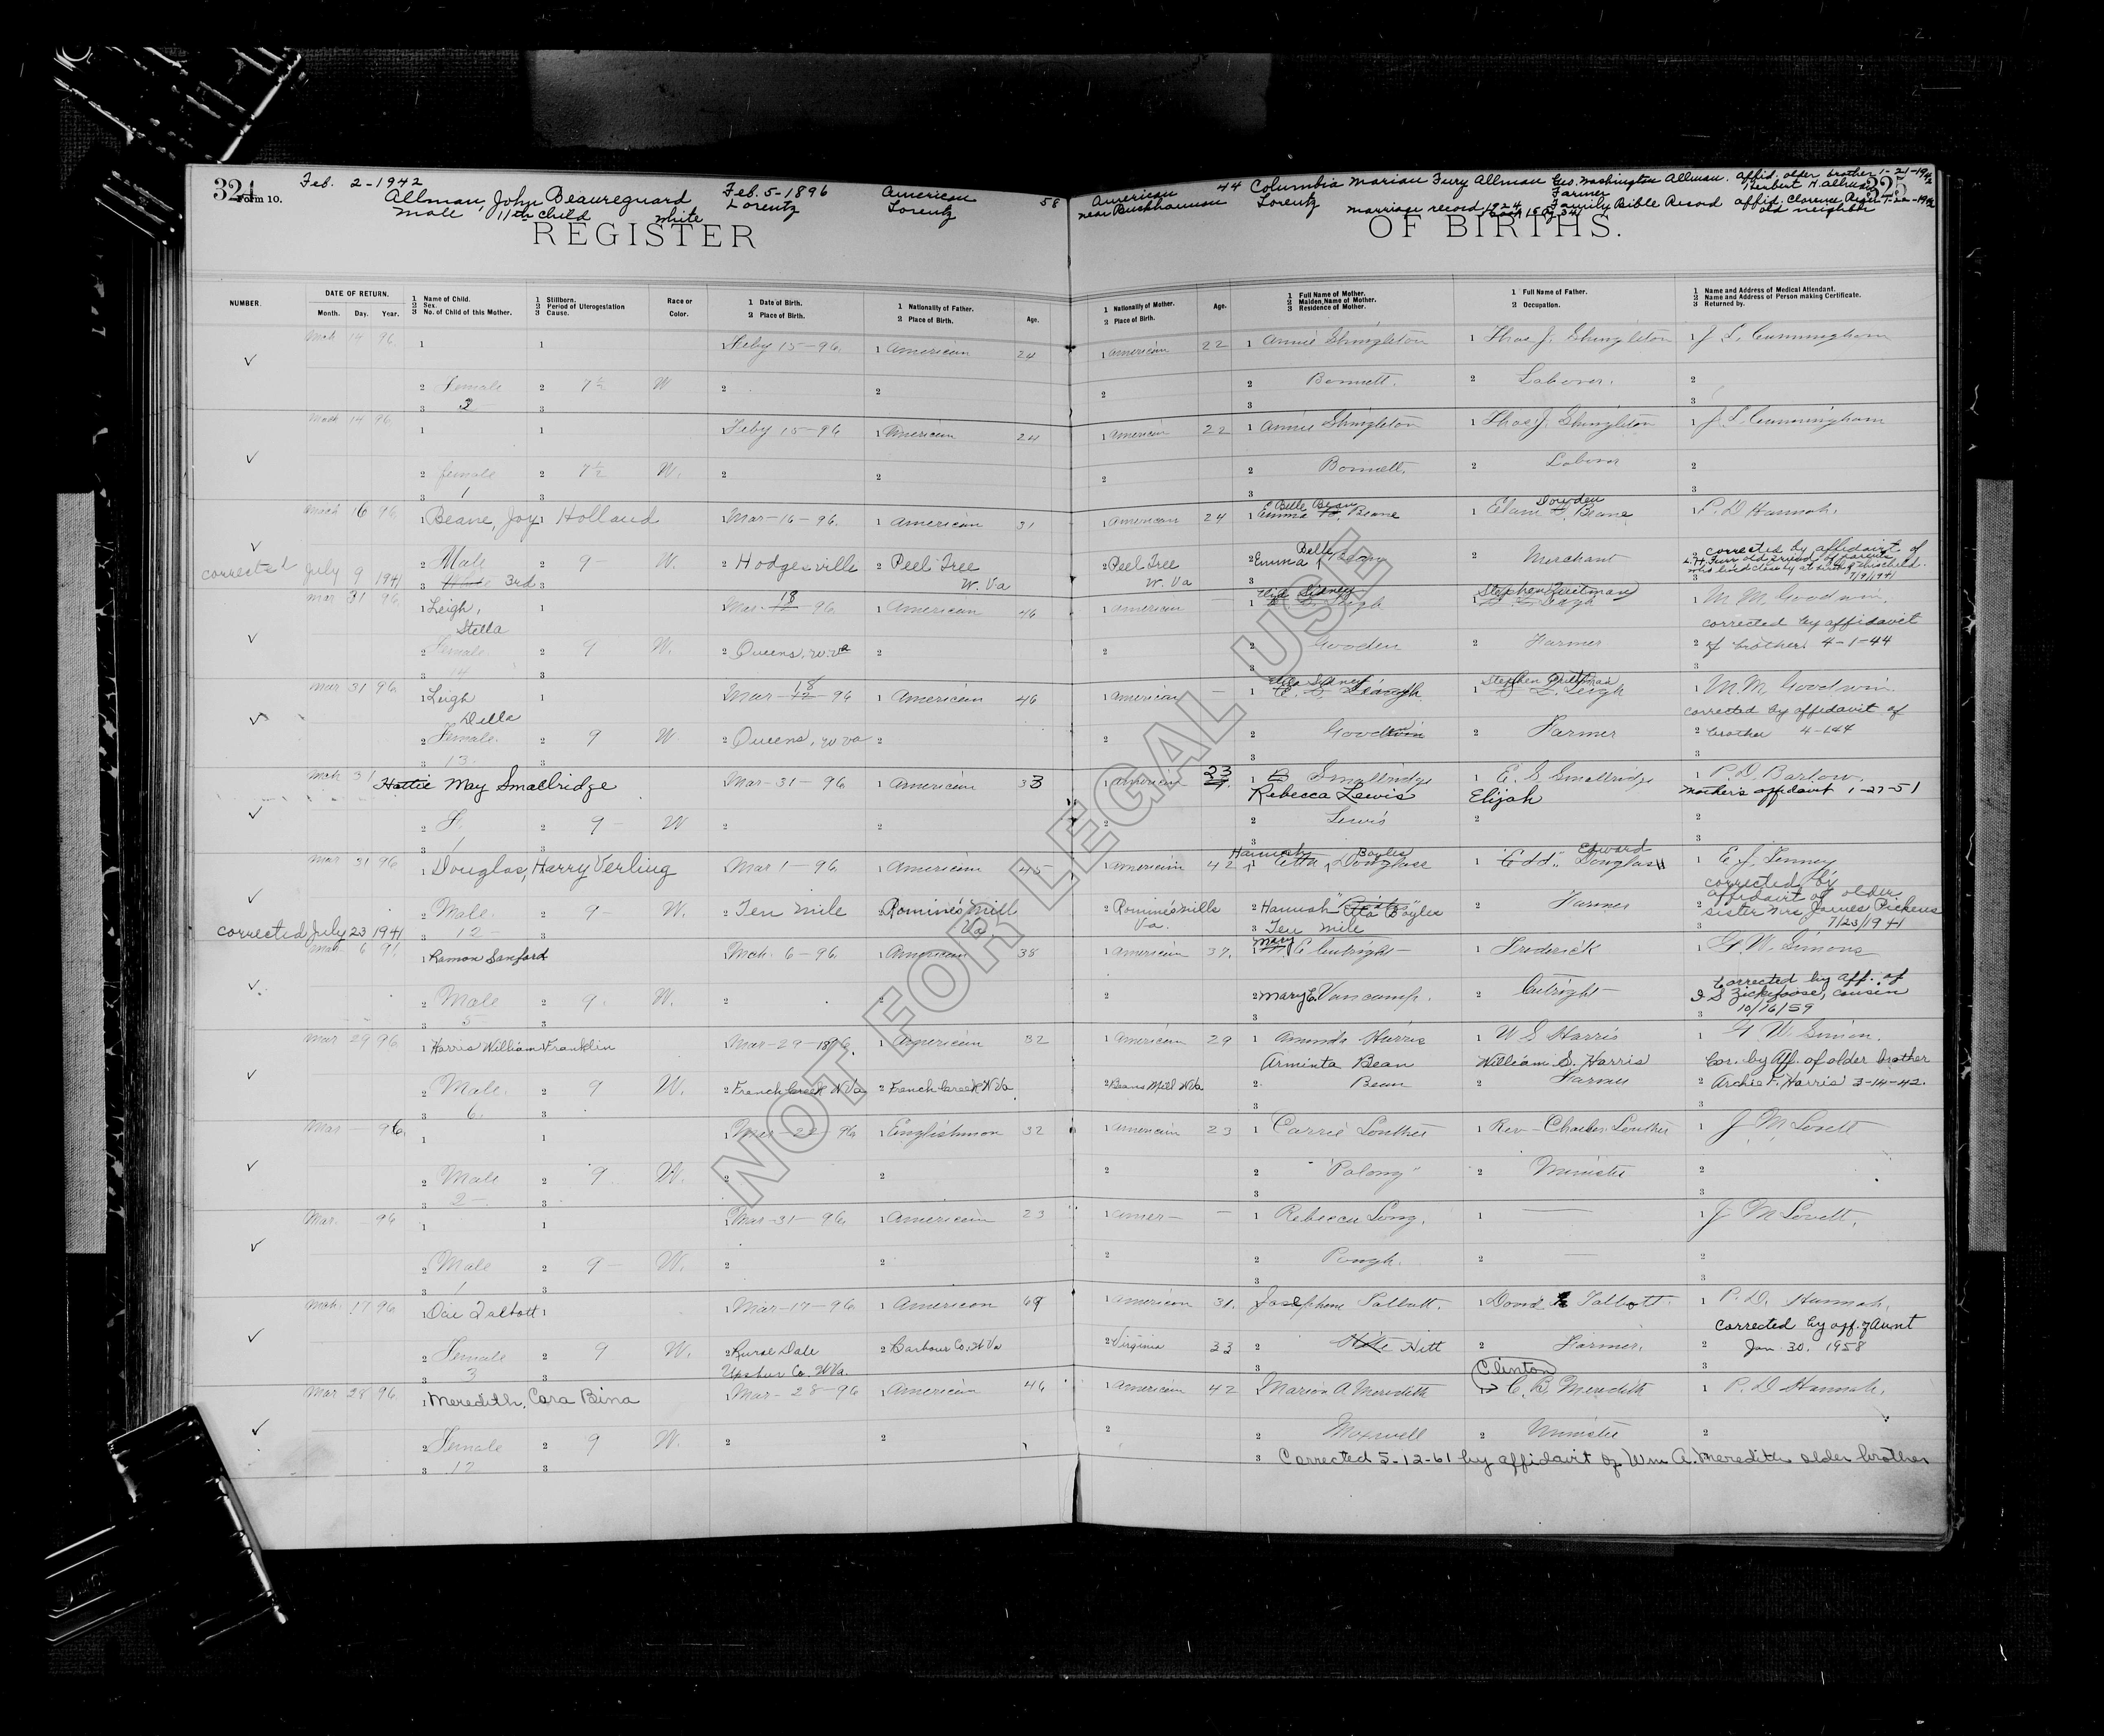 324
Form 10.
Feb. 2-1942
Allman, John Beaureguard
Male 11th child white
Feb. 5-1896
Lorentz
American
Lorentz
58
REGISTER
American
near Buckhannon
44
Columbia Marian Fury Allman
Lorentz
marriage record 1924
Geo. Washington Allman.
Farmer
Family Bible Record
Affid. older brother 1-21-1942
Herbert H. Allman
affid. Clarence
old neighbor
325
OF BIRTHS.
NUMBER.
DATE OF RETURN.
Month. Day. Year.
1 Name of Child.
2 Sex.
3 No. of Child of this Mother.
1 Stillborn.
2 Period of Uterogestation
3 Cause.
Race or
Color.
1 Date of Birth.
2 Place of Birth.
1 Nationality of Father.
2 Place of Birth.
Age.
1 Nationality of Mother.
2 Place of Birth.
Age.
1 Full Name of Mother.
2 Maiden Name of Mother.
3 Residence of Mother.
1 Full Name of Father.
2 Occupation.
1 Name and Address of Medical Attendant.
2 Name and Address of Person making Certificate.
3 Returned by.
Mch 14 96 1 1 1 Feby 15-96 1 American 24 1 American 22 1 Annie Shingleton 1 Thos J. Shingleton 1 J. S. Cunningham
2 Female 2 7½ W 2 2 2 2 Bonnett. 2 Laborer. 2
3 2 3 3 3
Mch 14 96 1 1 1 Feby 15-96 1 American 24 1 American 22 1 Annie Shingleton 1 Thos J. Shingleton 1 J. S. Cunningham
2 female 2 7½ W. 2 2 2 2 Bonnett. 2 Laborer 2
3 1 3 3 3
March 16 96 1 Beane, Joy 1 Holland 1 Mar-16-96. 1 American 31 1 American 24 1 Emma Beane 1 Elam Dowden Beane 1 P. D. Hannah.
Belle Bean
2 Male 2 9- W. 2 Hodgesville 2 Peel Tree W. Va 2 Peel Tree W. Va 2 Emma Belle 2 Merchant 2 corrected by affidavit of
corrected July 9 1941 3 3rd 3
L. H. Furr old friend of parents
who lived close by at birth of this child.
3 7/9/1941
Mar 31 96 1 Leigh, Stella 1 1 Mar 18 96 1 American 46 1 American — 1 Eliza Sidney Leigh 1 Stephen Quitman Leigh 1 M. M. Goodwin.
corrected by affidavit
2 Female. 2 9 W. 2 Queens, W. Va 2 2 2 Gooden 2 Farmer 2 of brother 4-1-44
3 14 3 3 3
Mar 31 96 1 Leigh Della 1 1 Mar-18-96 1 American 46 1 American — 1 Eliza Sidney Leigh 1 Stephen Quitman Leigh 1 M. M. Goodwin.
corrected by affidavit of
2 Female. 2 9 W 2 Queens, W Va 2 2 2 2 Farmer 2 brother 4-1-44
3 13. 3 3 3
Mch 31 Hattie May Smallridge 1 Mar-31-96 1 American 33 1 American 23 1 B Smallridge 1 E. S Smallridge 1 P. D. Barlow.
Rebecca Lewis Elijah Mother's affidavit 1-27-51
2 F. 2 9- W 2 2 2 2 Lewis 2 2
3 1 3 3 3
Mar 31 96 1 Douglas, Harry Verling 1 Mar 1-96 1 American 45 1 American 42 1 Hannah Etta Boyles Douglass 1 "Edd" Edward Douglass 1 E. J. Tenney
2 Male. 2 9- W. 2 Ten Mile 2 Romines Mill Va. 2 Romines Mills Va. 2 Hannah Boyles 2 Farmer 2 corrected by
affidavit of older
sister Mrs James Pickens
corrected July 23 1941 3 12- 3 3 Ten Mile 3 7/23/1941
Mch 6 1 Ramon Sanford 1 Mch 6-96 1 American 38 1 American 37. 1 Mary C Cutright 1 Frederick 1 G. W. Simons
2 Male 2 9. W. 2 2 2 2 Mary C. Vancamp. 2 Cutright 2 Corrected by aff. of
I S Zickefoose, cousin
3 5 3 3 3 10/16/59
Mar 29 96 1 Harris William Franklin 1 Mar-29-1896. 1 American 32 1 American 29 1 Aminda Harris 1 W S Harris 1 G. W. Simon.
Arminta Bean William S. Harris Cor. by Aff. of older brother
2 Male. 2 9 W. 2 French Creek W Va 2 French Creek W Va 2 Beans Mill W Va 2 Bean 2 Farmer 2 Archie F. Harris 3-14-42.
3 6. 3 3 3
Mar — 96. 1 1 1 Mar-22-96 1 Englishman 32 1 American 23 1 Carrie Louther 1 Rev- Charles Louther 1 J M Lovett
2 Male 2 9 W. 2 2 2 2 2 Minister 2
3 2- 3 3 3
Mar. — 96 1 1 1 Mar-31-96. 1 American 23 1 Amer- — 1 Rebecca Long. 1 — 1 J M Lovett.
2 Male 2 9- W. 2 2 2 2 Pough. 2 — 2
3 1 3 3 3
Mch 17 96 1 Ocie Talbott 1 1 Mar-17-96 1 American 69 1 American 31. 1 Josephene Talbott. 1 David Talbott. 1 P. D. Hannah.
corrected by aff. of Aunt
2 Female 2 9 W. 2 Rural Dale 2 Barbour Co. W Va 2 Virginia 33 2 Hitt 2 Farmer. 2 Jan. 30. 1958
3 3 3 Upshur Co. W Va. 3 3
Mar 28 96 1 Meredith, Cora Bina 1 Mar-28-96 1 American 46 1 American 42 1 Marion A Meredith 1 Clinton C. B. Meredith 1 P. D Hannah.
2 Female 2 9 W. 2 2 2 2 Maxwell 2 Minister 2
3 12 3 3 Corrected 5-12-61 by affidavit of Wm A. Meredith older brother
NOT FOR LEGAL USE